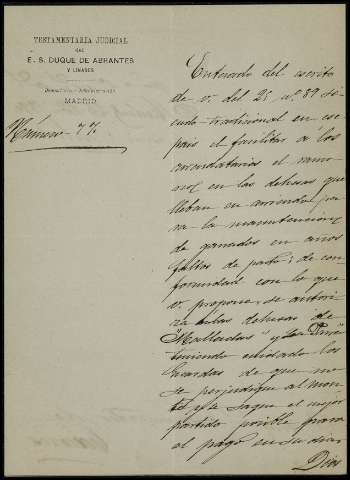 TESTAMENTARÍA JUDICIAL
DEL
E. S. DUQUE DE ABRANTES
Y LINARES
MADRID
Número 77
Enterado del escrito
de v. del 25 nº 89 si-
endo tradicional en ese
pais el facilitar á los
arrendatarios el ramo-
neo en las dehesas que
lleban en arriendo pa-
ra la manutencion
de ganados en años
faltos de pasto; de con-
formidad con lo que
v. propone, se autori-
za á las dehesas de
"Malladas" y
teniendo cuidado los
Guardas de que no
se perjudique al mon-
te y se saque el mejor
partido posible para
el pago en su dia.
Dios